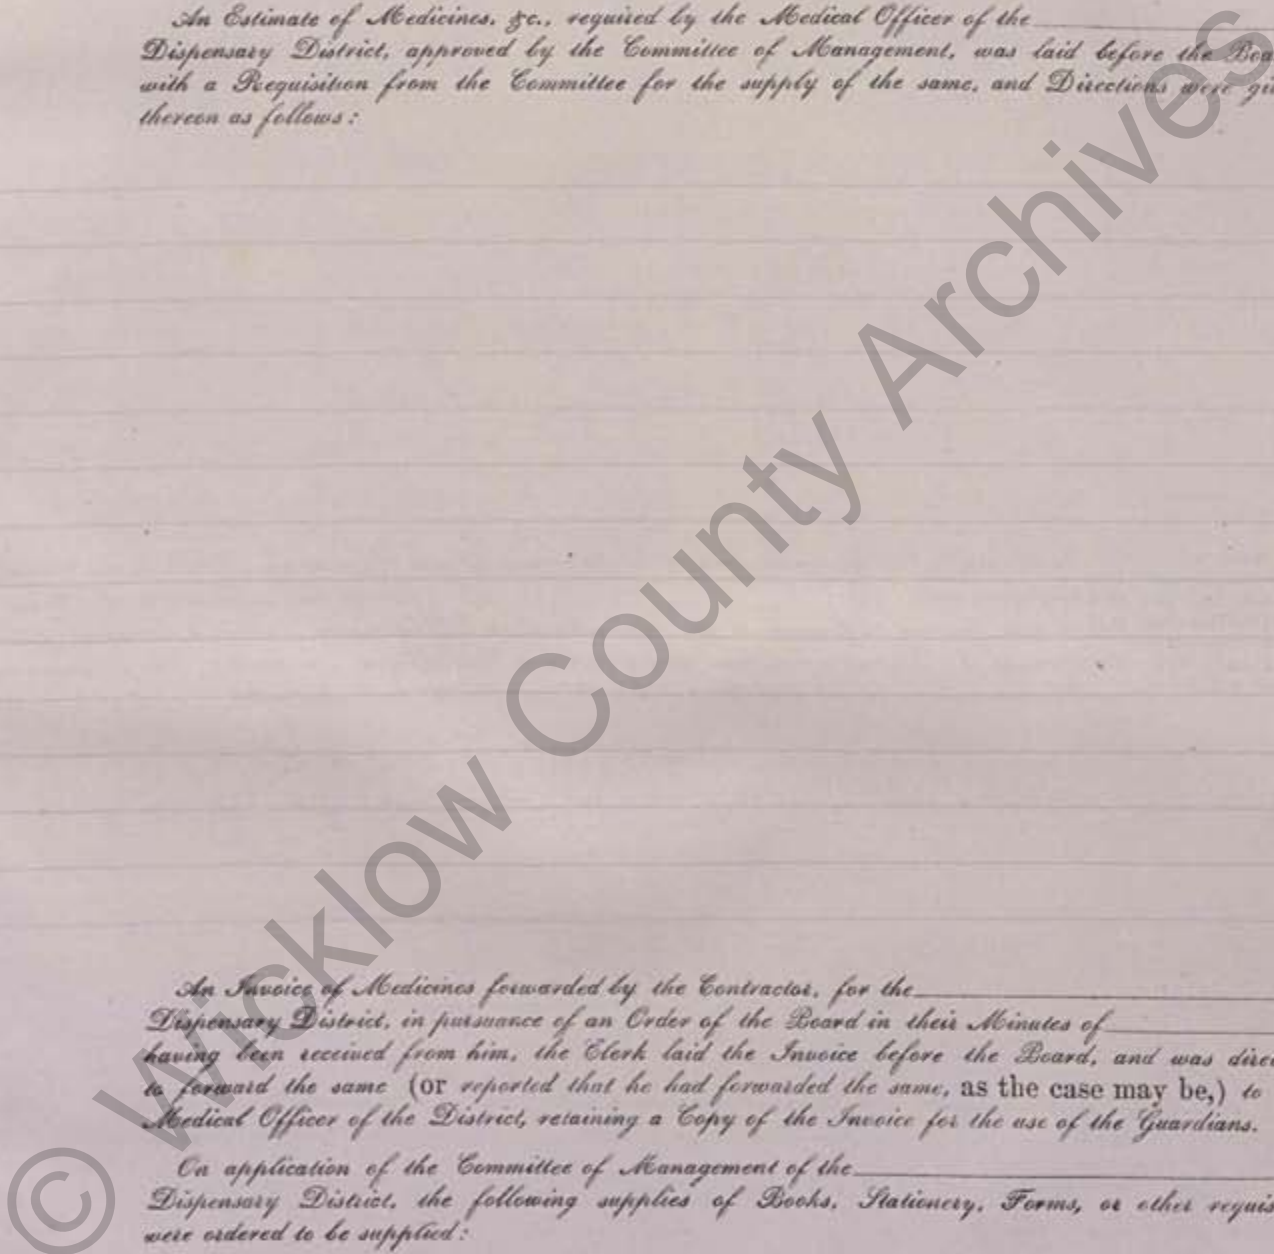 An Estimate of Medicines, &c., required by the Medical Officer of the
Dispensary District, approved by the Committee of Management, was laid before the Boa
with a Requisition from the Committee for the supply of the same, and Directions were gi
thereon as follows:
An Invoice of Medicines forwarded by the Contractor, for the
Dispensary District, in pursuance of an Order of the Board in their Minutes of
having been received from him, the Clerk laid the Invoice before the Board, and was direc
to forward the same (or reported that he had forwarded the same, as the case may be,) to
Medical Officer of the District, retaining a Copy of the Invoice for the use of the Guardians.
On application of the Committee of Management of the
Dispensary District, the following supplies of Books, Stationery, Forms, or other requis
were ordered to be supplied:
© Wicklow County Archives